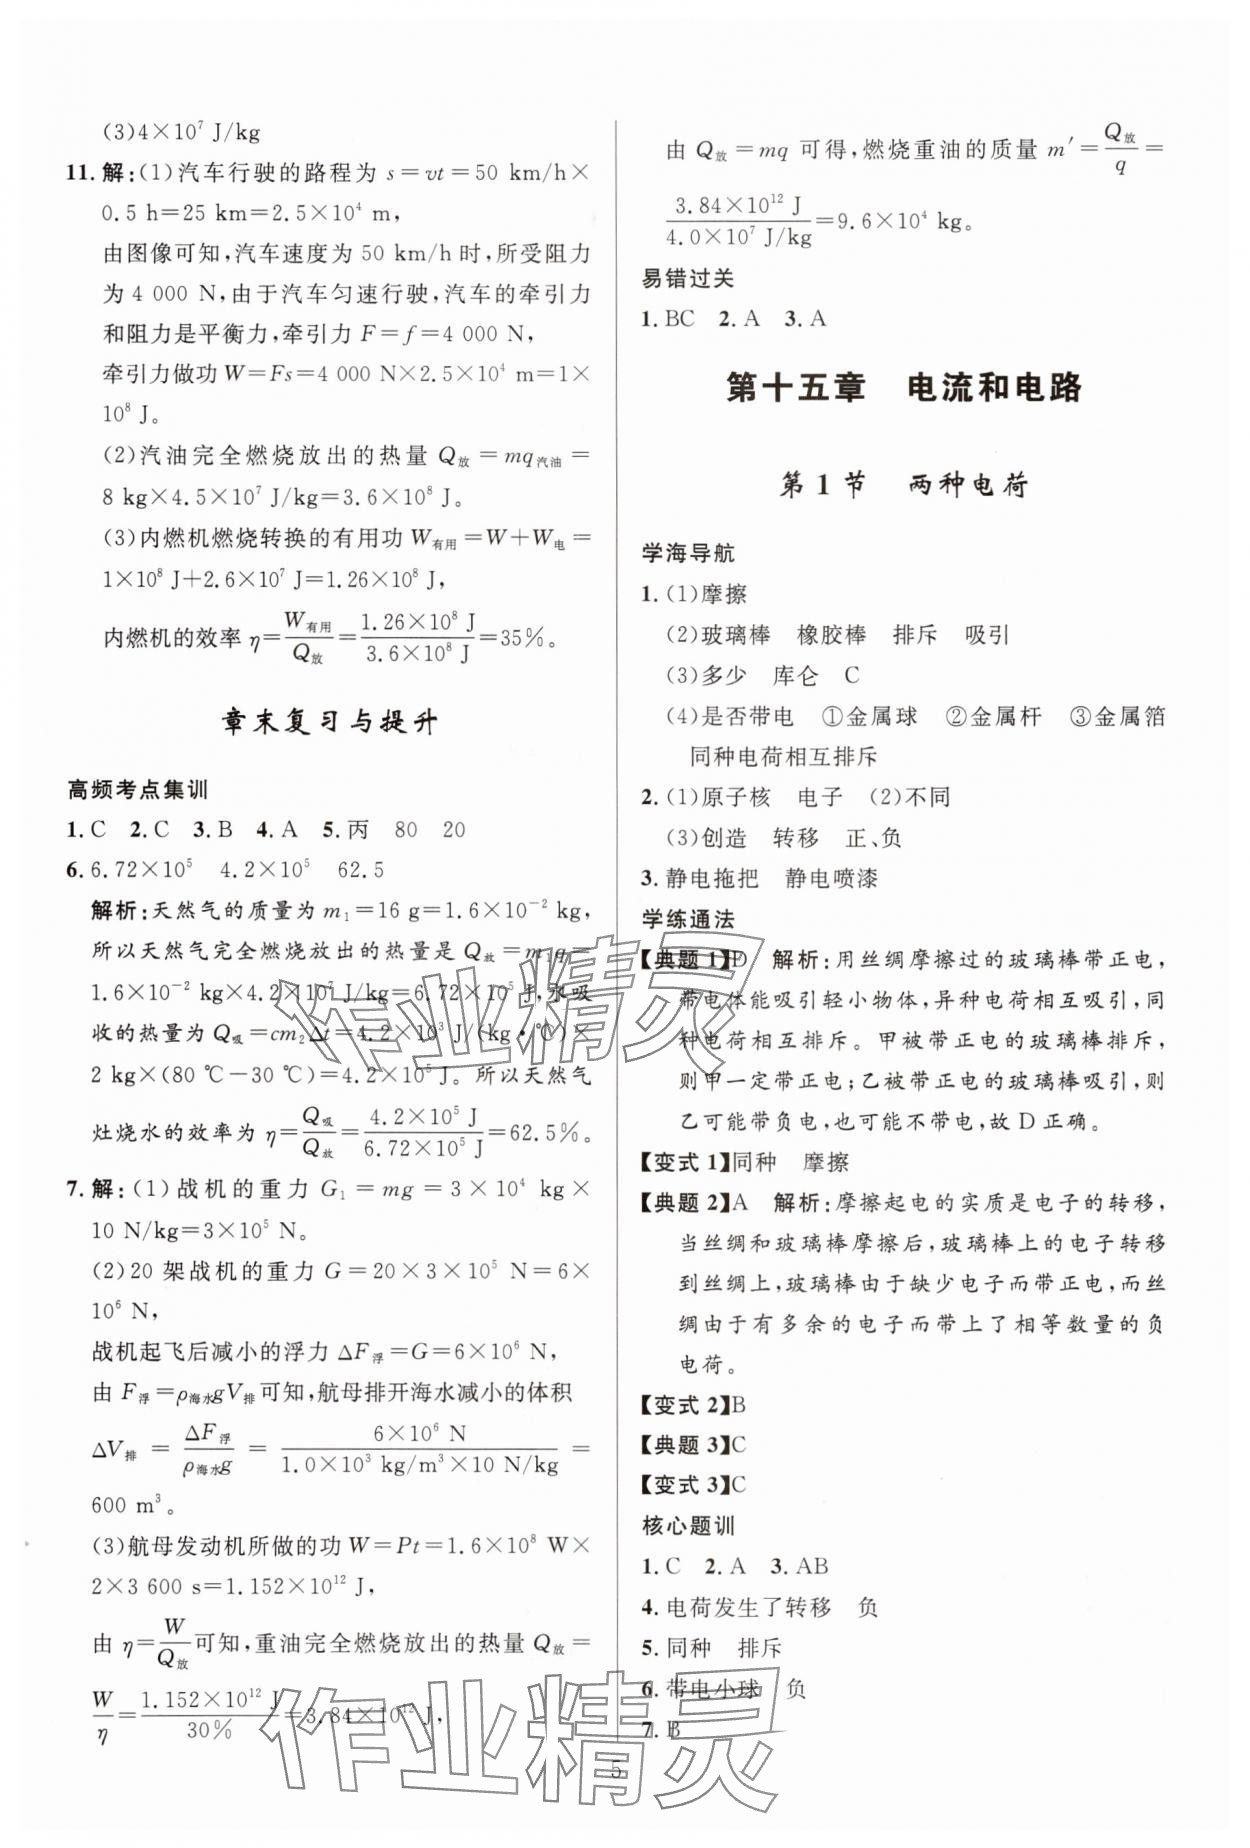 (3)4×10⁷ J/kg
11. 解:(1)汽车行驶的路程为 s=vt=50 km/h×
0.5 h=25 km=2.5×10⁴ m,
由图像可知,汽车速度为 50 km/h 时,所受阻力
为 4 000 N,由于汽车匀速行驶,汽车的牵引力
和阻力是平衡力,牵引力 F=f=4 000 N,
牵引力做功 W=Fs=4 000 N×2.5×10⁴ m=1×
10⁸ J。
(2)汽油完全燃烧放出的热量 Q放=mq汽油=
8 kg×4.5×10⁷ J/kg=3.6×10⁸ J。
(3)内燃机燃烧转换的有用功 W有用=W+W电=
1×10⁸ J+2.6×10⁷ J=1.26×10⁸ J,
内燃机的效率 η=W有用/Q放=1.26×10⁸ J/3.6×10⁸ J=35%。
章末复习与提升
高频考点集训
1. C 2. C 3. B 4. A 5. 丙 80 20
6. 6.72×10⁵ 4.2×10⁵ 62.5
解析:天然气的质量为 m₁=16 g=1.6×10⁻² kg,
所以天然气完全燃烧放出的热量是 Q放=m₁q=
1.6×10⁻² kg×4.2×10⁷ J/kg=6.72×10⁵ J,水吸
收的热量为 Q吸=cm₂Δt=4.2×10³ J/(kg·℃)×
2 kg×(80 ℃-30 ℃)=4.2×10⁵ J。所以天然气
灶烧水的效率为 η=Q吸/Q放=4.2×10⁵ J/6.72×10⁵ J=62.5%。
7. 解:(1)战机的重力 G₁=mg=3×10⁴ kg×
10 N/kg=3×10⁵ N。
(2)20 架战机的重力 G=20×3×10⁵ N=6×
10⁶ N,
战机起飞后减小的浮力 ΔF浮=G=6×10⁶ N,
由 F浮=ρ海水gV排可知,航母排开海水减小的体积
ΔV排=ΔF浮/ρ海水g=6×10⁶ N/1.0×10³ kg/m³×10 N/kg=
600 m³。
(3)航母发动机所做的功 W=Pt=1.6×10⁸ W×
2×3 600 s=1.152×10¹² J,
由 η=W/Q放可知,重油完全燃烧放出的热量 Q放=
W/η=1.152×10¹² J/30%=3.84×10¹² J,
由 Q放=mq 可得,燃烧重油的质量 m′=Q放/q=
3.84×10¹² J/4.0×10⁷ J/kg=9.6×10⁴ kg。
易错过关
1. BC 2. A 3. A
第十五章 电流和电路
第 1 节 两种电荷
学海导航
1. (1)摩擦
(2)玻璃棒 橡胶棒 排斥 吸引
(3)多少 库仑 C
(4)是否带电 ①金属球 ②金属杆 ③金属箔
同种电荷相互排斥
2. (1)原子核 电子 (2)不同
(3)创造 转移 正、负
3. 静电拖把 静电喷漆
学练通法
【典题 1】D 解析:用丝绸摩擦过的玻璃棒带正电,
带电体能吸引轻小物体,异种电荷相互吸引,同
种电荷相互排斥。甲被带正电的玻璃棒排斥,
则甲一定带正电;乙被带正电的玻璃棒吸引,则
乙可能带负电,也可能不带电,故 D 正确。
【变式 1】同种 摩擦
【典题 2】A 解析:摩擦起电的实质是电子的转移,
当丝绸和玻璃棒摩擦后,玻璃棒上的电子转移
到丝绸上,玻璃棒由于缺少电子而带正电,而丝
绸由于有多余的电子而带上了相等数量的负
电荷。
【变式 2】B
【典题 3】C
【变式 3】C
核心题训
1. C 2. A 3. AB
4. 电荷发生了转移 负
5. 同种 排斥
6. 带电小球 负
7. B
5
作业精灵
作业精灵